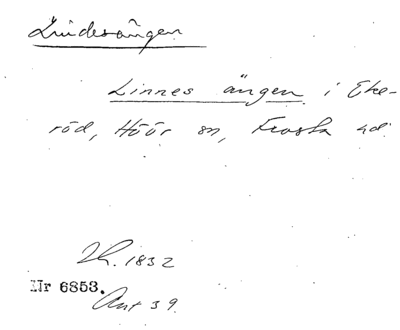 Lindesängen
Linnes ängen i Eke-
röd, Höör sn, Frosta hd
Lh. 1832
Nr 6853.
Ant 39.